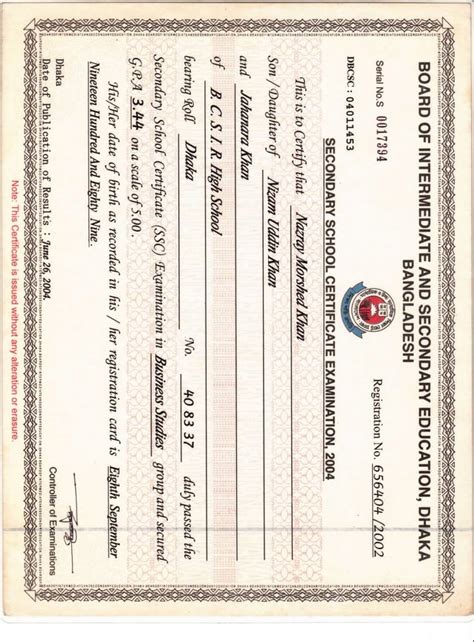 BOARD OF INTERMEDIATE AND SECONDARY EDUCATION, DHAKA
BANGLADESH
Serial No.S 0017394
Registration No. 656404 /2002
DBCSC : 04011453
SECONDARY SCHOOL CERTIFICATE EXAMINATION, 2004
This is to Certify that Nazray Morshed Khan
Son / Daughter of Nizam Uddin Khan
and Jahanara Khan
of B. C. S. I. R. High School
bearing Roll Dhaka No. 40 83 37 duly passed the
Secondary School Certificate (SSC) Examination in Business Studies group and secured
G.P.A 3.44 on a scale of 5.00.
His/Her date of birth as recorded in his / her registration card is Eighth September
Nineteen Hundred And Eighty Nine.
Dhaka
Date of Publication of Results : June 26, 2004.
Controller of Examinations
Note: This Certificate is issued without any alteration or erasure.